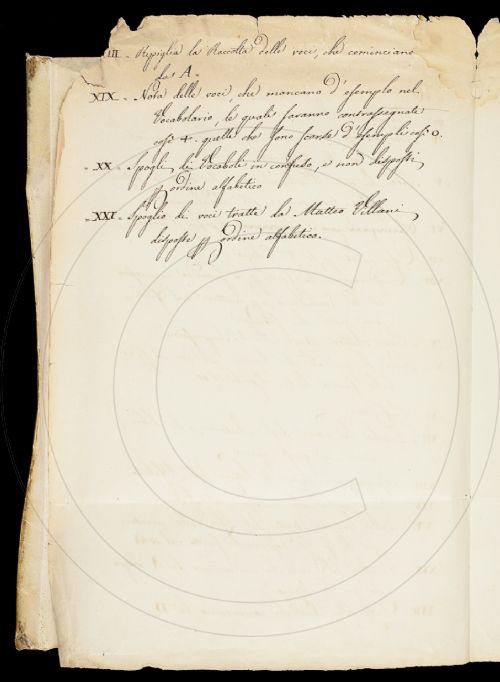 III. Repiglia la Raccolta delle voci, che cominciano
da A.
XIX. Nota delle voci, che mancano d'esempio nel
Vocabolario, le quali saranno contrassegnate
così +. quelle che sono scarse d'esempli così o.
XX. Spogli di Vocaboli in confuso, e non disposti
ordine alfabetico
XXI. Spoglio di voci tratte da Matteo Villani,
disposte ordine alfabetico.